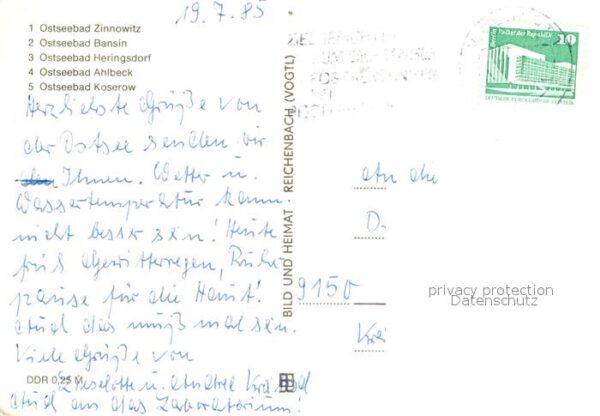 19.7.85
1 Ostseebad Zinnowitz
2 Ostseebad Bansin
3 Ostseebad Heringsdorf
4 Ostseebad Ahlbeck
5 Ostseebad Koserow
Herzlichste Grüße von
der Ostsee senden wir
Ihnen. Wetter u.
Wassertemperatur kann
nicht besser sein! Heute
früh Gewitterregen, Ruhe-
pause für die Haut!
Auch das muß mal sein.
Viele Grüße von
Lieselotte u. Andrea
Auch an das Laboratorium!
DDR 0,25 M
BILD UND HEIMAT REICHENBACH (VOGTL)
Palast der Republik
10
An die
D.
9150
privacy protection
Datenschutz